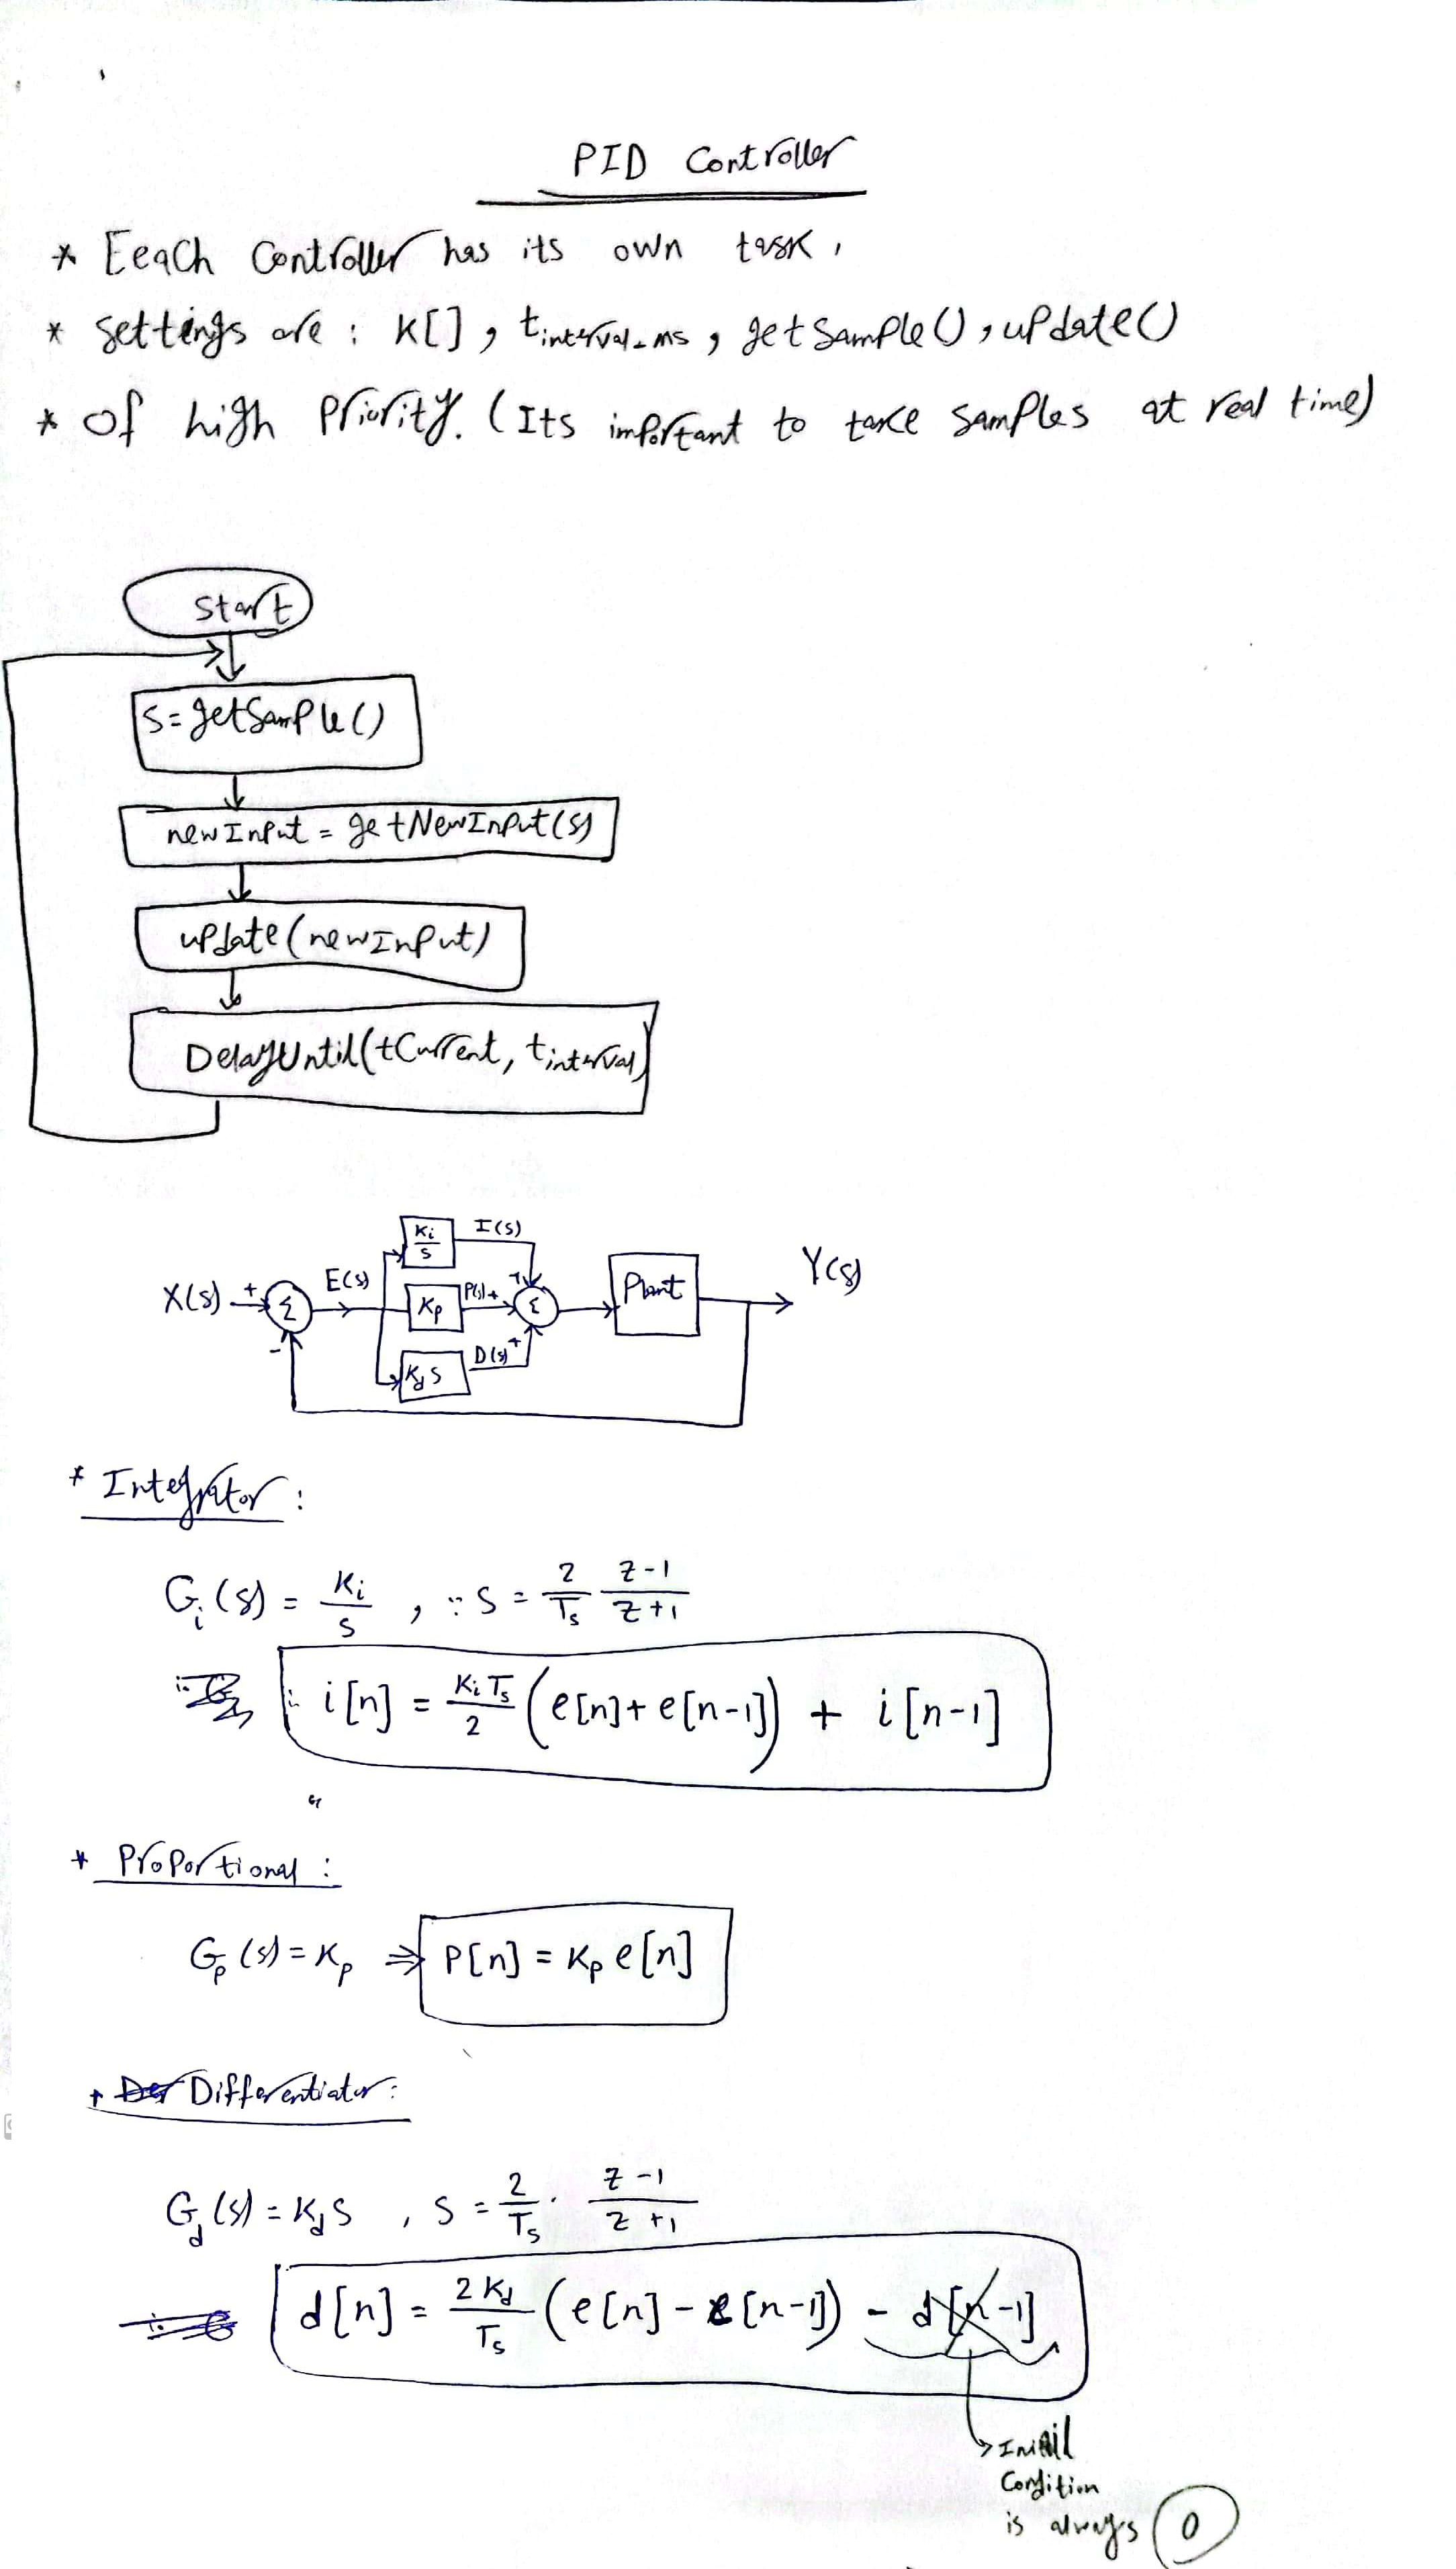 PID Controller
* Eeach Controller has its own task,
* settings are : K[] , tinterval_ms , getSample() , update()
* Of high Priority. (Its important to take samples at real time)
Start
S = getSample()
newInput = getNewInput(s)
update(newInput)
DelayUntil(tCurrent, tinterval)
Ki/s I(s)
X(s) + Σ E(s) Kp P(s) + + Σ Plant Y(s)
-
Kd S D(s) +
* Integrator :
Gi(s) = Ki/s , ∵ S = 2/Ts z-1/z+1
∴ i[n] = KiTs/2 (e[n] + e[n-1]) + i[n-1]
* Proportional :
Gp(s) = Kp ⇒ P[n] = Kp e[n]
* Der Differentiator :
Gd(s) = Kd S , S = 2/Ts . z-1/z+1
d[n] = 2Kd/Ts (e[n] - e[n-1]) - d[n-1]
Initail
Condition
is always 0